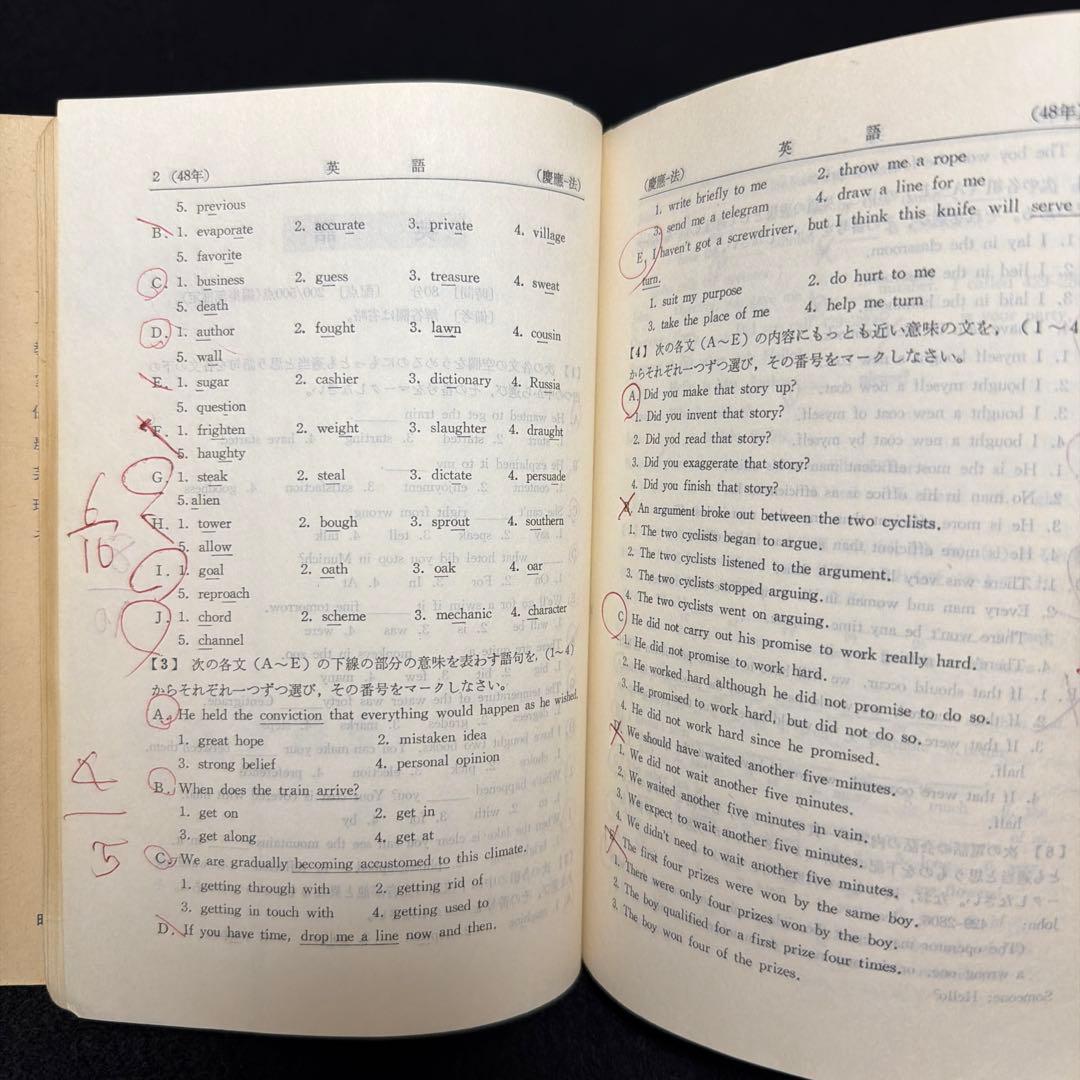 2 (48年) 英 語 (慶應-法)
5. previous
B. 1. evaporate 2. accurate 3. private 4. village
5. favorite
C. 1. business 2. guess 3. treasure 4. sweat
5. death
D. 1. author 2. fought 3. lawn 4. cousin
5. wall
E. 1. sugar 2. cashier 3. dictionary 4. Russia
5. question
F. 1. frighten 2. weight 3. slaughter 4. draught
5. haughty
G. 1. steak 2. steal 3. dictate 4. persuade
5. alien
H. 1. tower 2. bough 3. sprout 4. southern
5. allow
I. 1. goal 2. oath 3. oak 4. oar
5. reproach
J. 1. chord 2. scheme 3. mechanic 4. character
5. channel
6
10
【3】 次の各文(A〜E)の下線の部分の意味を表わす語句を,(1〜4)
からそれぞれ一つずつ選び,その番号をマークしなさい。
A. He held the conviction that everything would happen as he wished.
1. great hope 2. mistaken idea
3. strong belief 4. personal opinion
B. When does the train arrive?
1. get on 2. get in
3. get along 4. get at
C. We are gradually becoming accustomed to this climate.
1. getting through with 2. getting rid of
3. getting in touch with 4. getting used to
D. If you have time, drop me a line now and then.
4
5
(慶應-法) 英 語 (48年)
1. write briefly to me 2. throw me a rope
3. send me a telegram 4. draw a line for me
E. I haven't got a screwdriver, but I think this knife will serve
turn.
1. suit my purpose 2. do hurt to me
3. take the place of me 4. help me turn
【4】 次の各文(A〜E)の内容にもっとも近い意味の文を,(1〜4
からそれぞれ一つずつ選び,その番号をマークしなさい。
A. Did you make that story up?
1. Did you invent that story?
2. Did yod read that story?
3. Did you exaggerate that story?
4. Did you finish that story?
An argument broke out between the two cyclists.
1. The two cyclists began to argue.
2. The two cyclists listened to the argument.
3. The two cyclists stopped arguing.
4. The two cyclists went on arguing.
C. He did not carry out his promise to work really hard.
1. He did not promise to work hard.
2. He worked hard although he did not promise to do so.
3. He promised to work hard, but did not do so.
4. He did not work hard since he promised.
We should have waited another five minutes.
1. We did not wait another five minutes.
2. We waited another five minutes in vain.
3. We expect to wait another five minutes.
4. We didn't need to wait another five minutes.
The first four prizes were won by the same boy.
1. There were only four prizes won by the boy.
2. The boy qualified for a first prize four times.
3. The boy won four of the prizes.